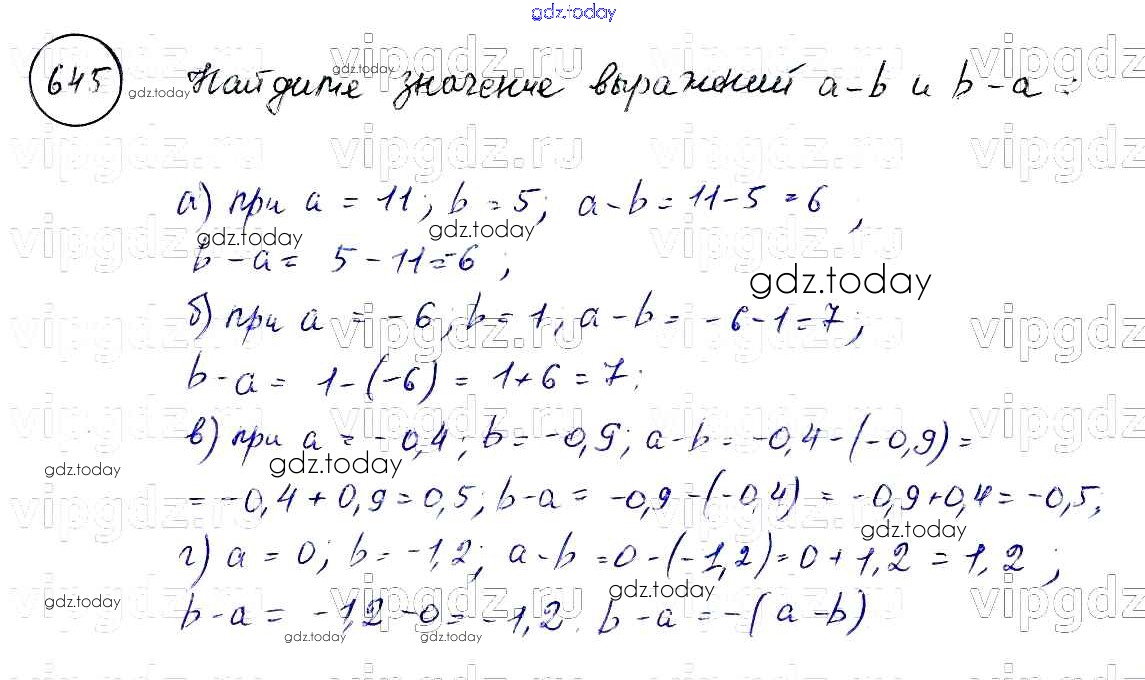 gdz.today
645 Найдите значение выражений a-b и b-a:
а) при a = 11; b = 5; a-b = 11-5 = 6;
b-a = 5-11=-6;
б) при a = -6; b = 1, a-b = -6-1=7;
b-a = 1-(-6) = 1+6 = 7;
в) при a = -0,4; b = -0,9; a-b = -0,4-(-0,9) =
= -0,4+0,9=0,5; b-a = -0,9-(-0,4) = -0,9+0,4 = -0,5,
г) a = 0; b = -1,2; a-b = 0-(-1,2)=0+1,2 = 1,2;
b-a = -1,2-0=-1,2. b-a = -(a-b)